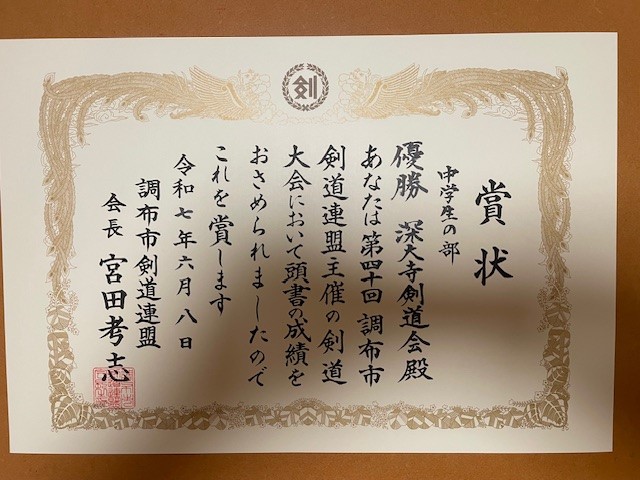 剣
賞状
中学生の部
優勝 深大寺剣道会殿
あなたは第四十回調布市
剣道連盟主催の剣道
大会において頭書の成績を
おさめられましたので
これを賞します
令和七年六月八日
調布市剣道連盟
会長 宮田考志